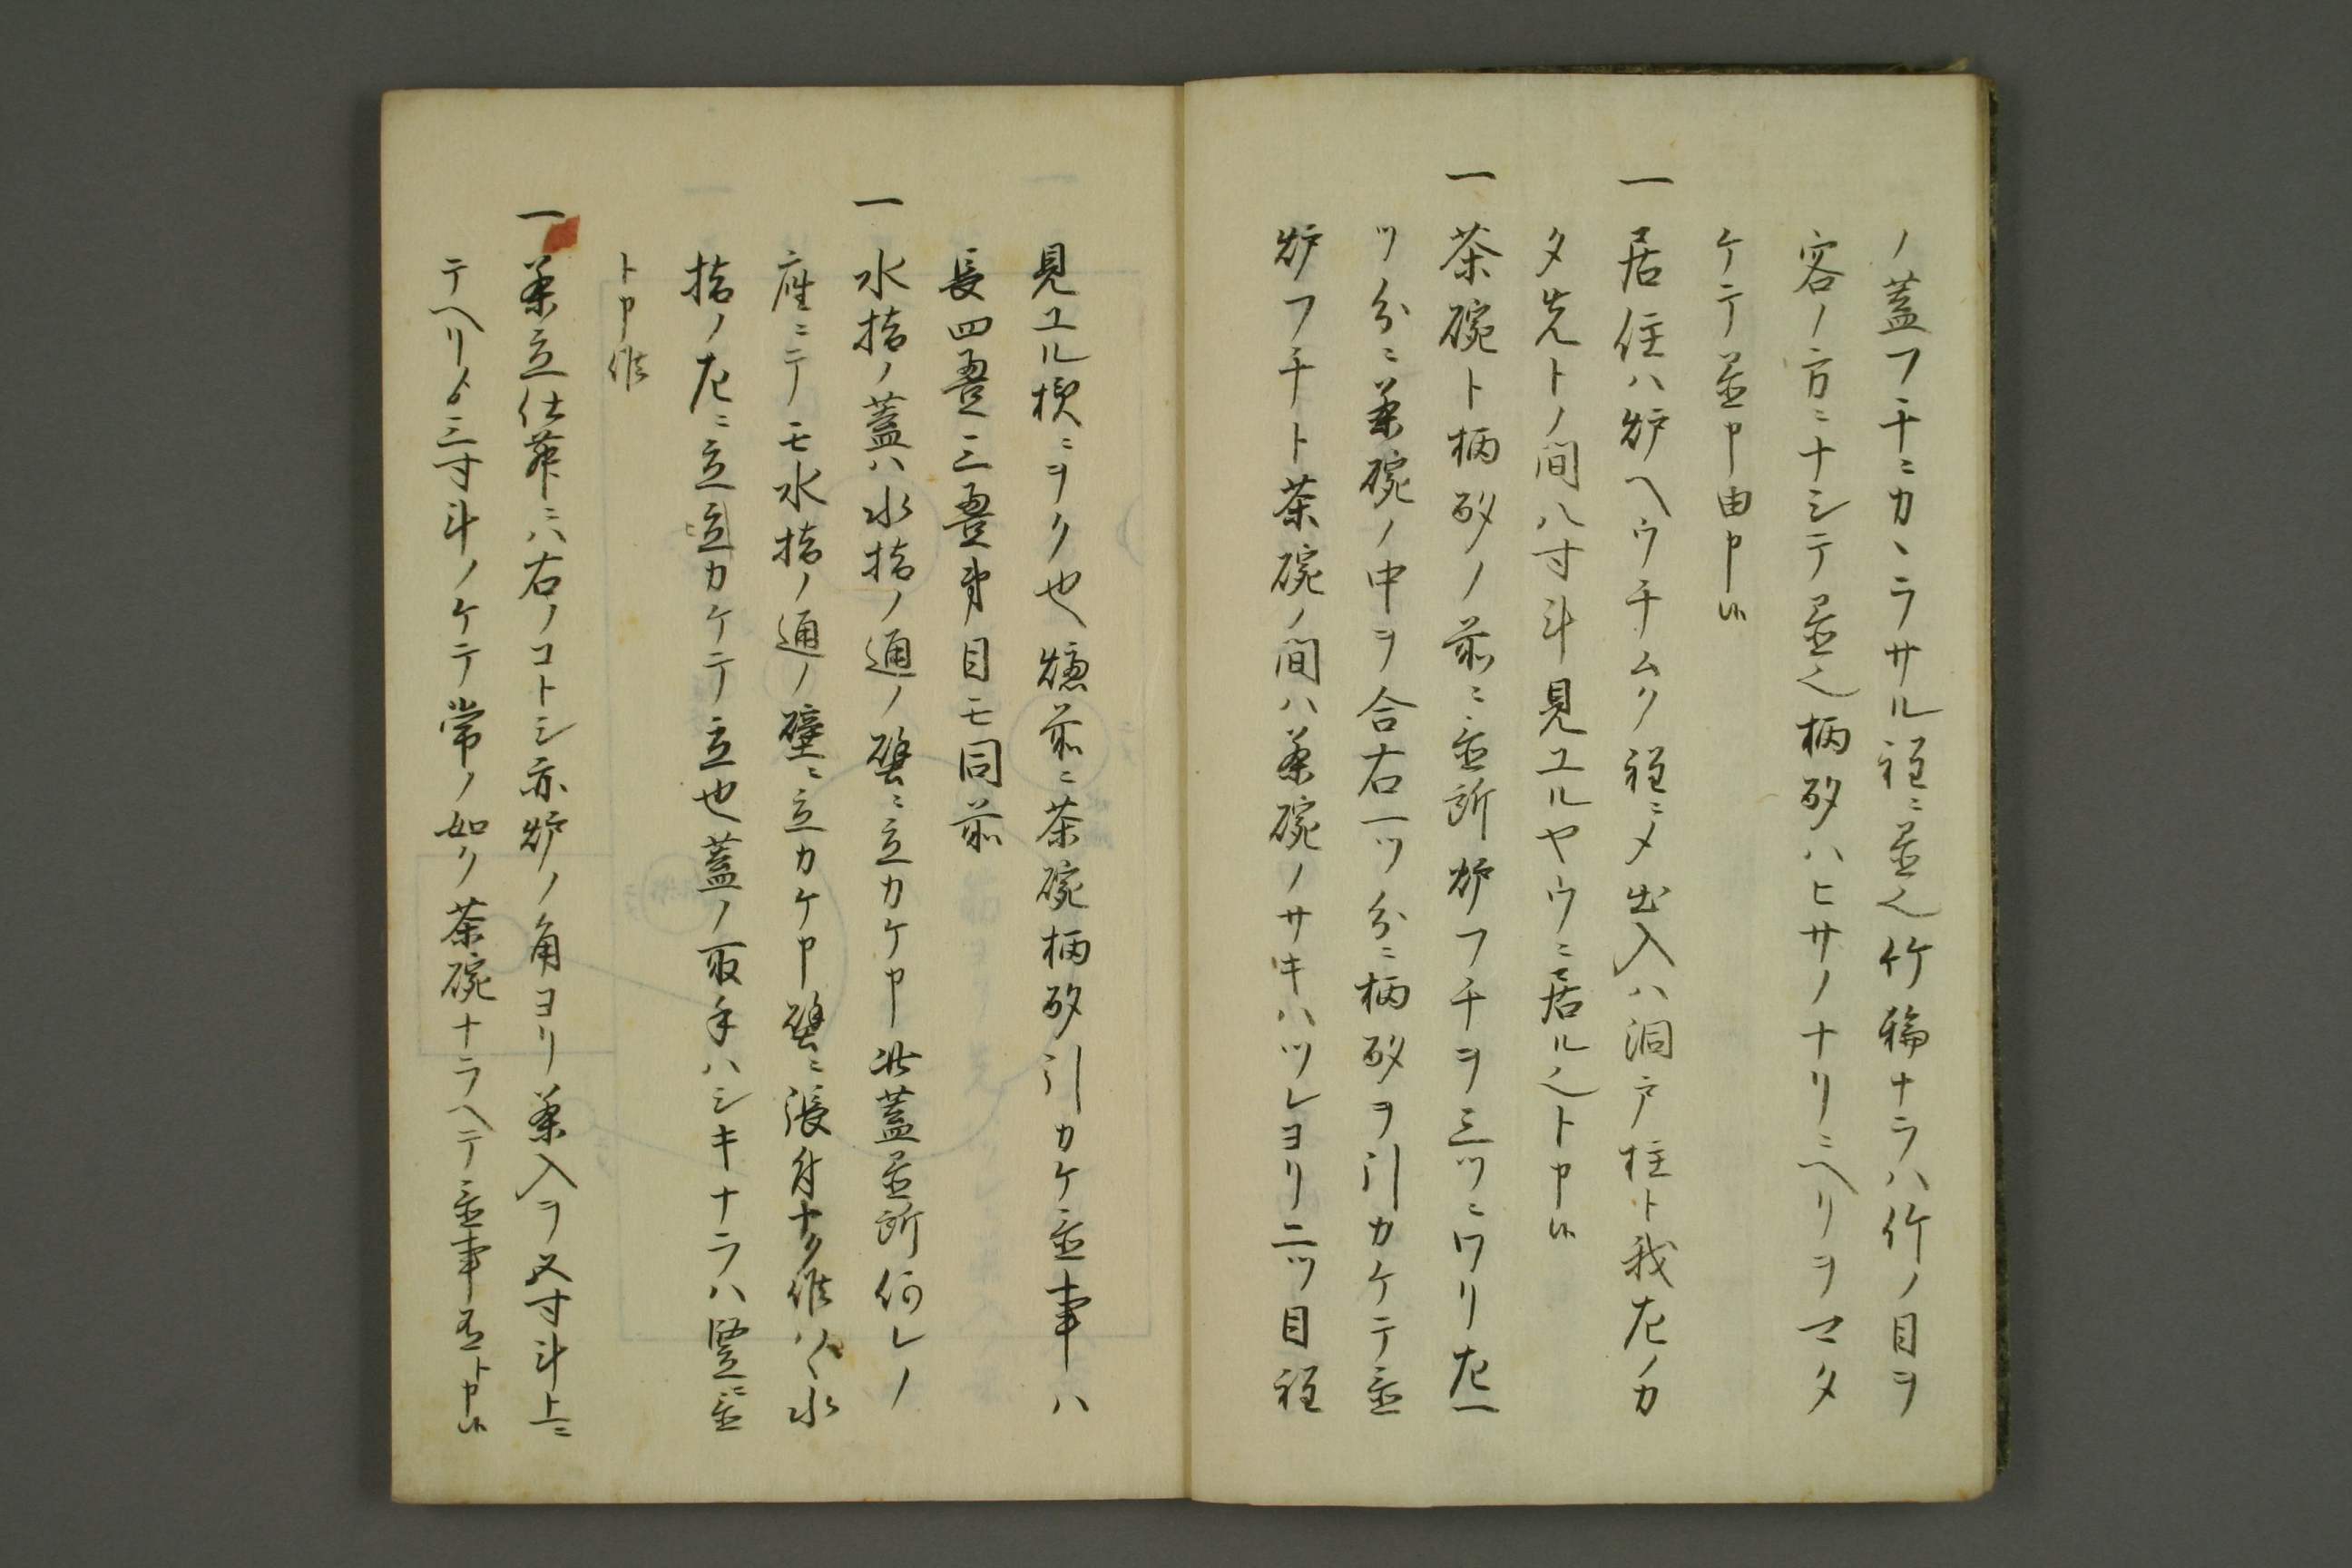 ノ蓋フチニカヽラサル程ニ置之竹輪ナラハ竹ノ目ヲ
客ノ方ニナシテ置之柄杓ハヒサノナリニヘリヲマタ
ケテ置申由申候
一居住ハ炉ヘウチムク程ニメ出入ハ洞戸柱ト我左ノカ
タ先トノ間八寸斗見ユルヤウニ居ル之ト申候
一茶碗ト柄杓ノ前ニ置所炉フチヲ三ツニワリ左一
ツ分ニ茶碗ノ中ヲ合右一ツ分ニ柄杓ヲ引カケテ置
炉フチト茶碗ノ間ハ茶碗ノサキハツレヨリ二ツ目程
見ユル様ニヲク也爐前ニ茶碗柄杓引カケ置事ハ
長四畳三畳目モ同前
一水指ノ蓋ハ水指ノ通ノ壁ニ立カケ申此蓋置所何レノ
座ニテモ水指ノ通ノ壁ニ立カケ申壁ニ張付ナク候ハヽ水
指ノ左ニ立カケテ立也蓋ノ取手ハシキナラハ竪ニ置
ト申候
一茶立仕廻ニハ右ノコトシ亦炉ノ角ヨリ茶入ヲ五寸斗上ニ
テヘリヨリ三寸斗ノケテ常ノ如ク茶碗ナラヘテ置事吉ト申候